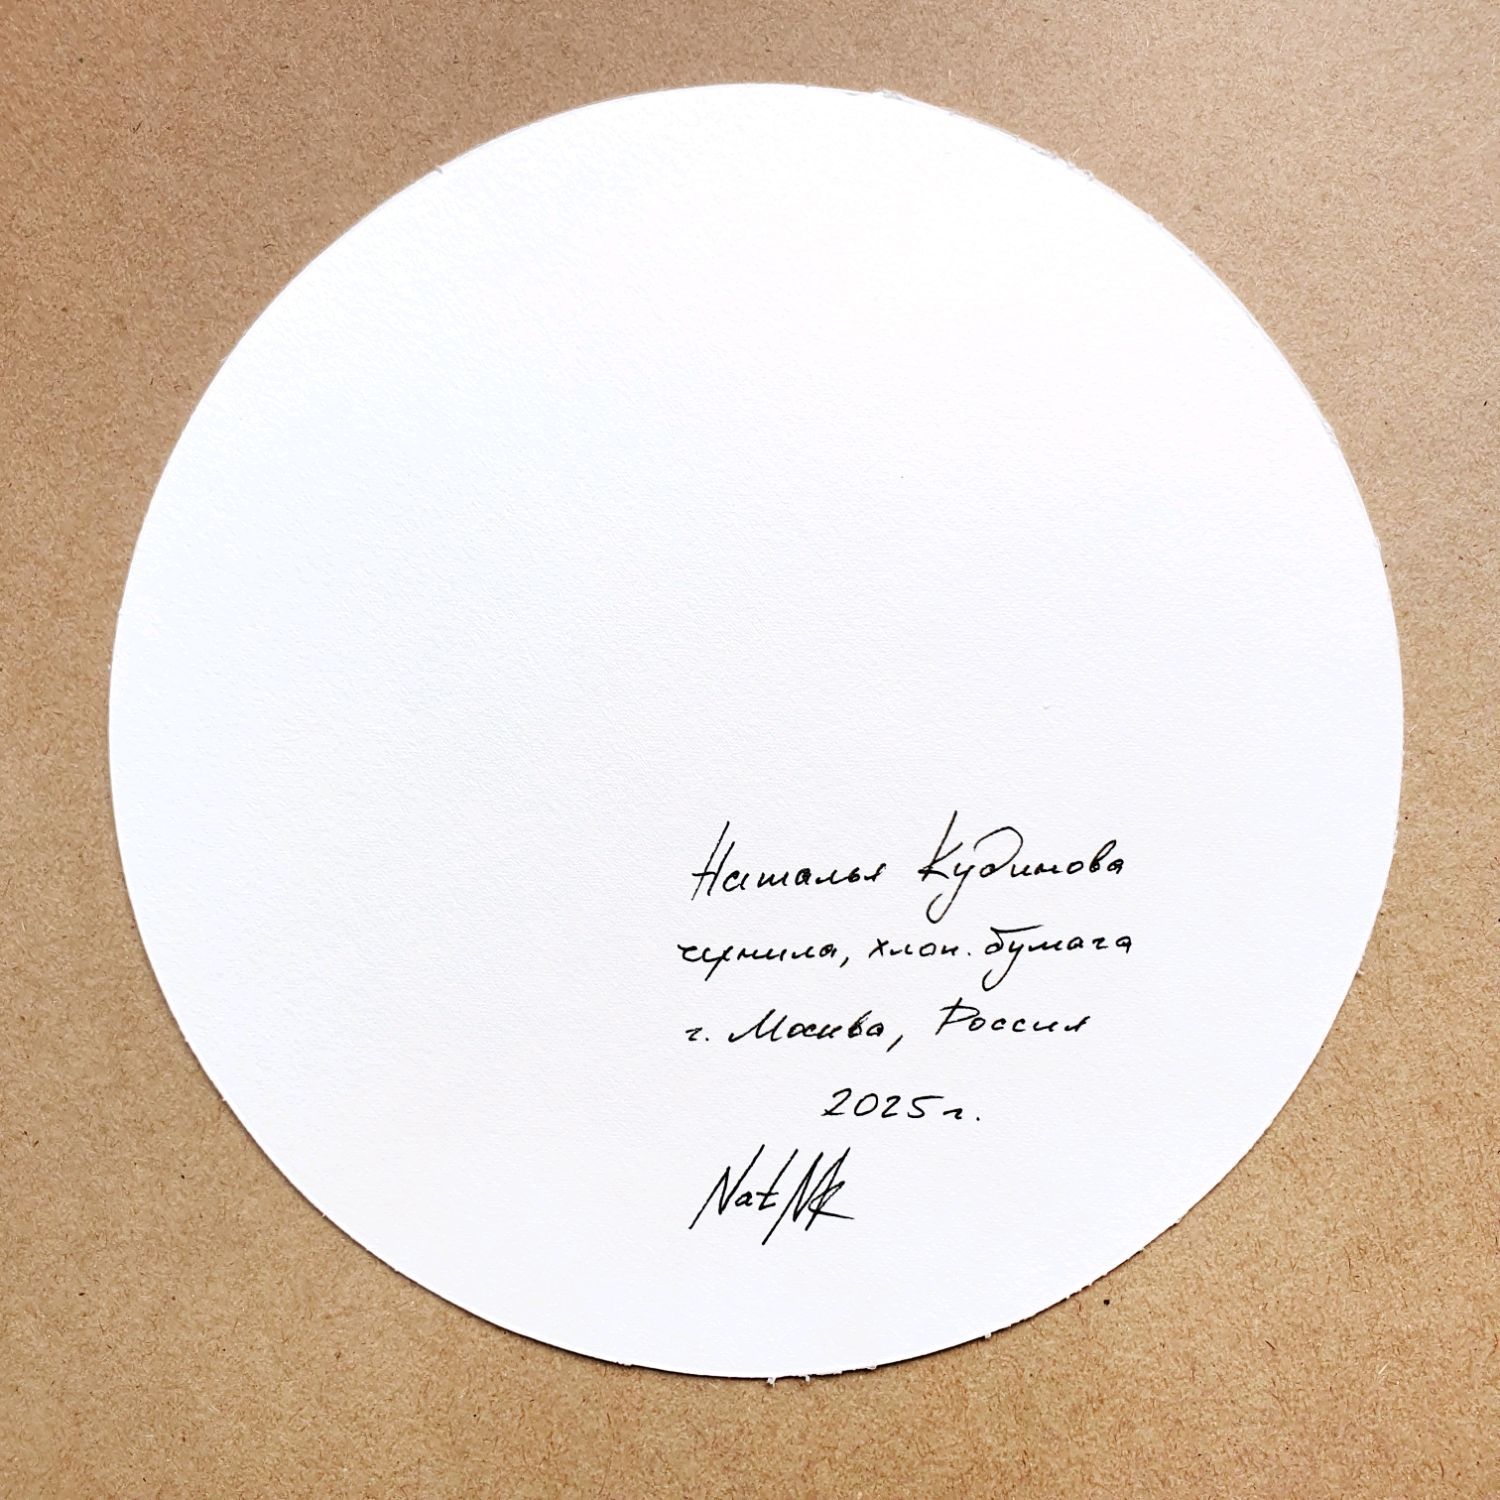 Наталья Кудинова
чернила, хлоп. бумага
г. Москва, Россия
2025 г.
NatNK